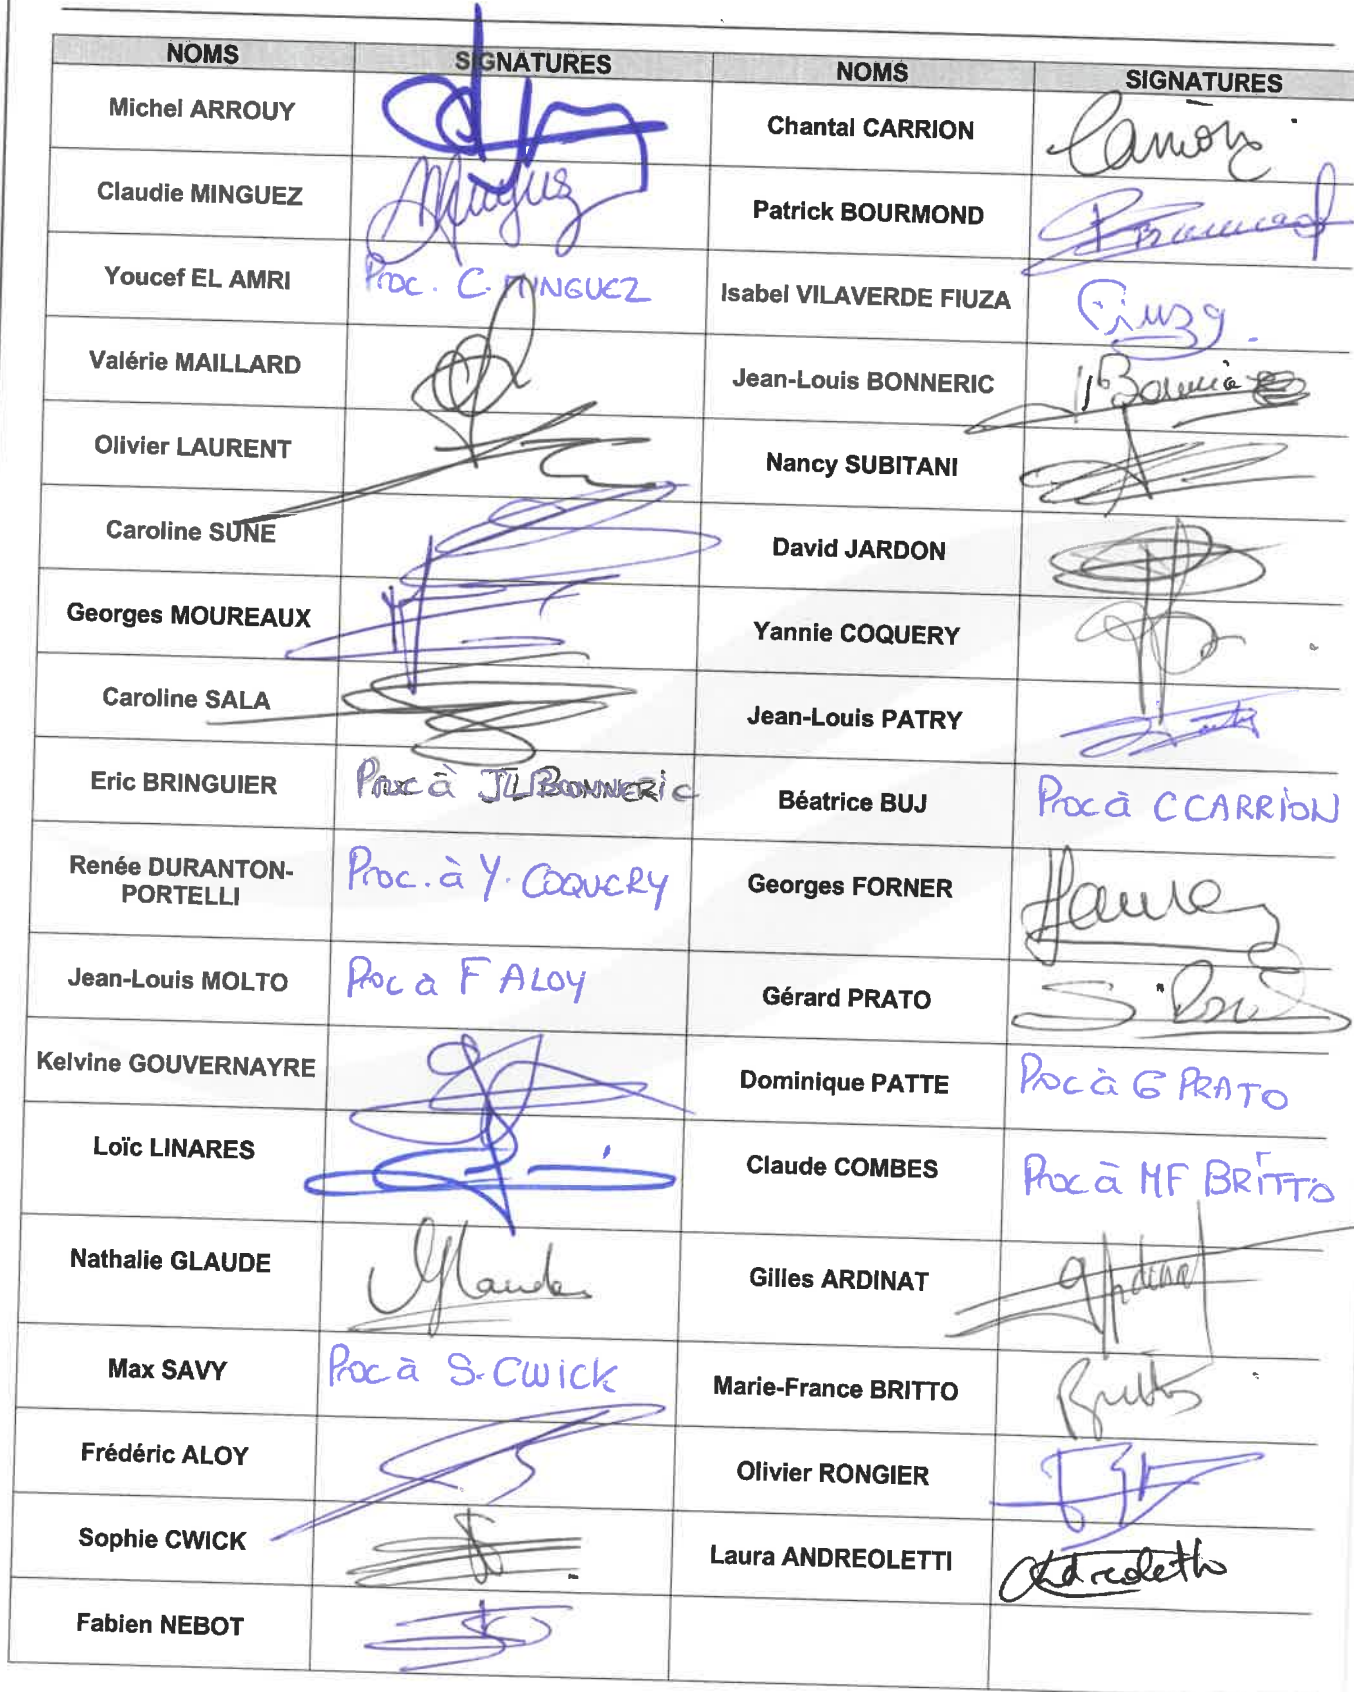 NOMS SIGNATURES NOMS SIGNATURES
Michel ARROUY Chantal CARRION
Claudie MINGUEZ Patrick BOURMOND
Youcef EL AMRI Proc. C. MINGUEZ Isabel VILAVERDE FIUZA Fiuza.
Valérie MAILLARD Jean-Louis BONNERIC
Olivier LAURENT Nancy SUBITANI
Caroline SUNE David JARDON
Georges MOUREAUX Yannie COQUERY
Caroline SALA Jean-Louis PATRY
Eric BRINGUIER Proc à JL BONNERIC Béatrice BUJ Proc à C CARRION
Renée DURANTON-
PORTELLI Proc. à Y. COQUERY Georges FORNER
Jean-Louis MOLTO Proc à F ALOY Gérard PRATO
Kelvine GOUVERNAYRE Dominique PATTE Proc à G PRATO
Loïc LINARES Claude COMBES Proc à MF BRITTO
Nathalie GLAUDE Glaude Gilles ARDINAT Ardinat
Max SAVY Proc à S. CWICK Marie-France BRITTO Britto
Frédéric ALOY Olivier RONGIER
Sophie CWICK Laura ANDREOLETTI Andreoletti
Fabien NEBOT